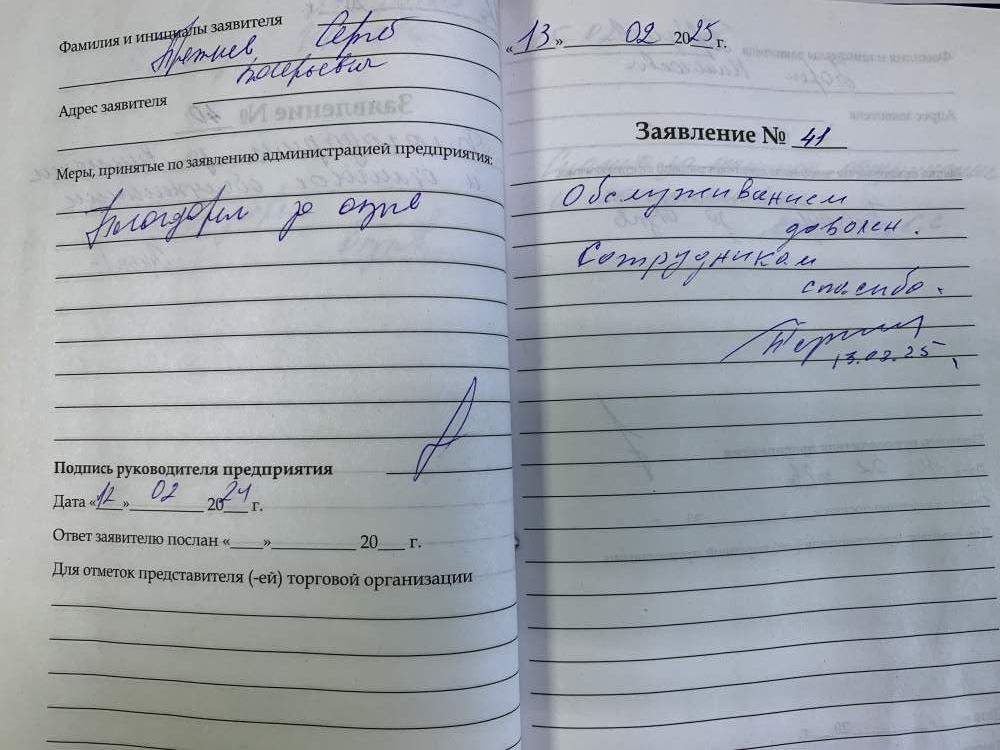 Фамилия и инициалы заявителя
Сергей
Валерьевич
Адрес заявителя
Меры, принятые по заявлению администрацией предприятия:
за отзыв
Подпись руководителя предприятия
Дата «12» 02 2024 г.
Ответ заявителю послан «___»__________ 20___ г.
Для отметок представителя (-ей) торговой организации
«13» 02 2025 г.
Заявление № 41
Обслуживанием
доволен.
Сотрудникам
спасибо.
13.02.25